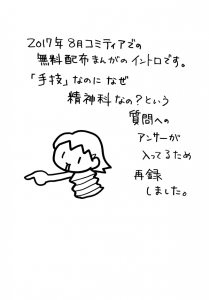 2017年8月コミティアでの
無料配布まんがのイントロです。
「手技」なのになぜ
精神科なの?という
質問への
アンサーが
入ってるため
再録
しました。